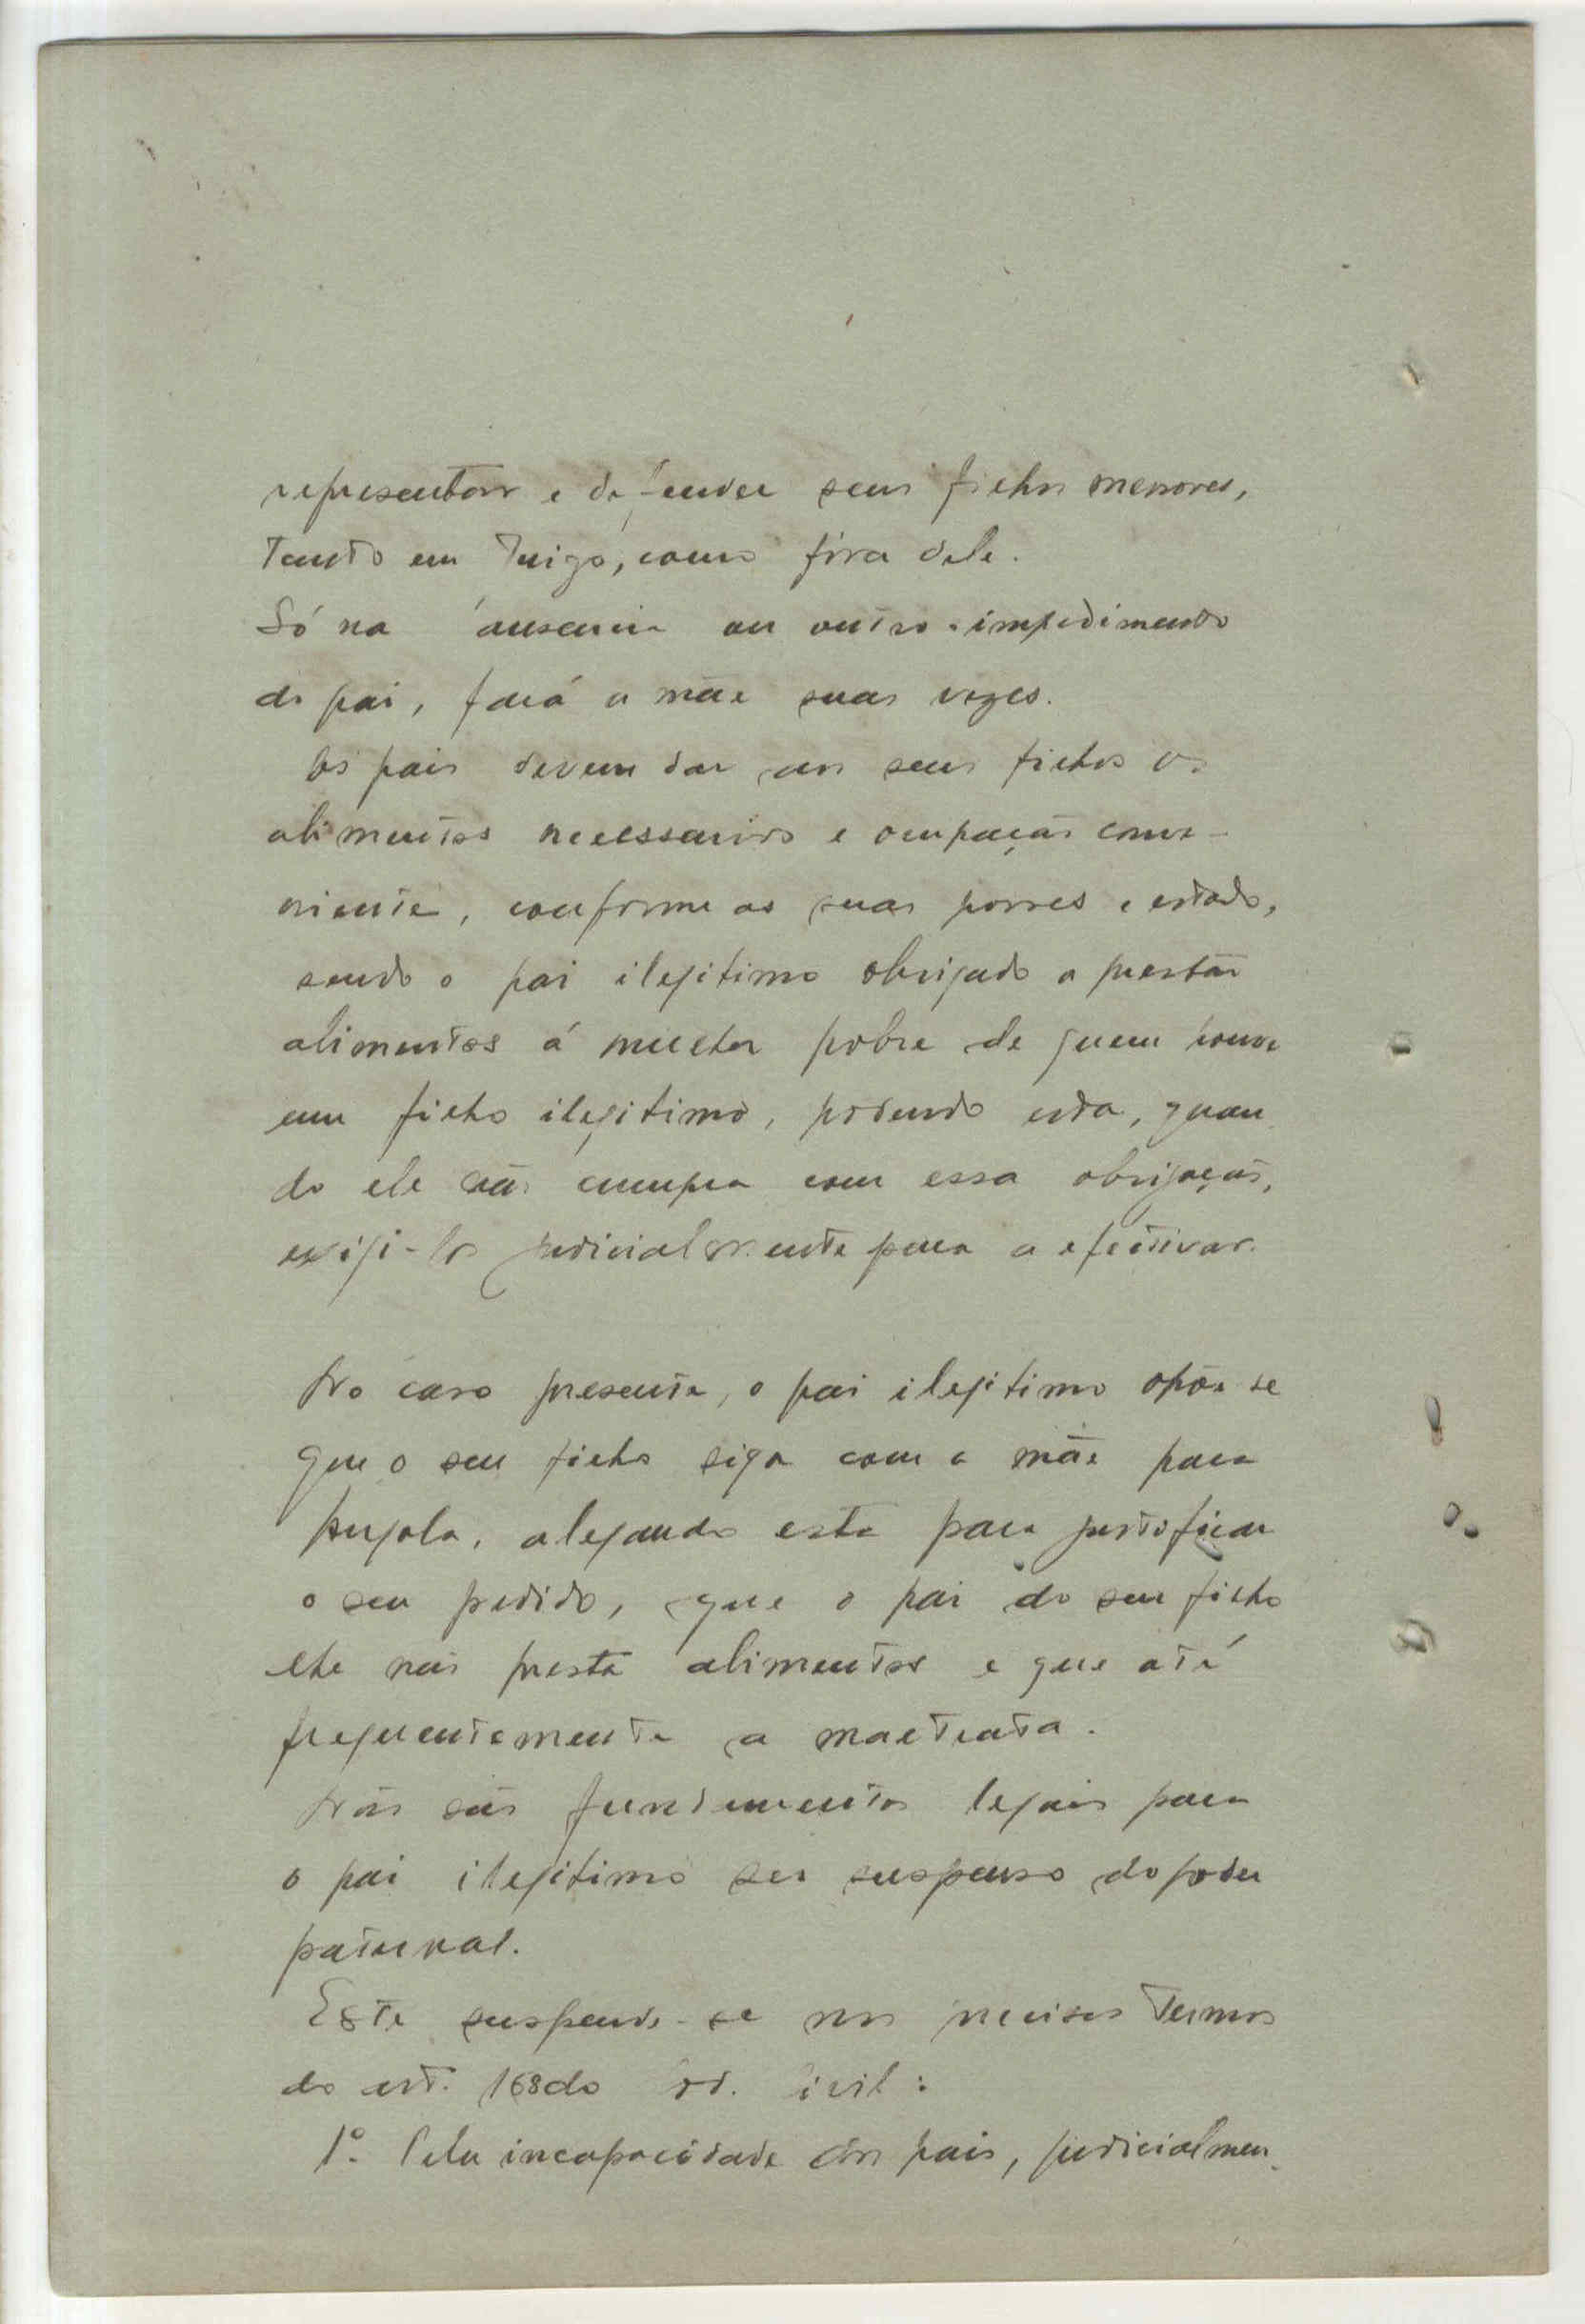 representar e defender seus filhos menores,
tanto em Juizo, como fóra dele.
Só na ausencia ou outro impedimento
do pai, fará a mãe suas vezes.
Os pais devem dar aos seus filhos os
alimentos necessarios e ocupação conve-
niente, conforme as suas posses e estado,
sendo o pai ilegitimo obrigado a prestar
alimentos á mulher pobre de quem houve
um filho ilegitimo, podendo esta, quan-
do ele não cumpra com essa obrigação,
exigi-lo judicialmente para a efectivar.
No caso presente, o pai ilegitimo opõe se
que o seu filho siga com a mãe para
Angola, alegando esta para justificar
o seu pedido, que o pai do seu filho
lhe não presta alimentos e que até
frequentemente a maltrata.
Não são fundamentos legais para
o pai ilegitimo ser suspenso do poder
paternal.
Este suspende-se nos precisos termos
do art. 168 do Cod. Civil:
1º. Pela incapacidade dos pais, judicialmen-